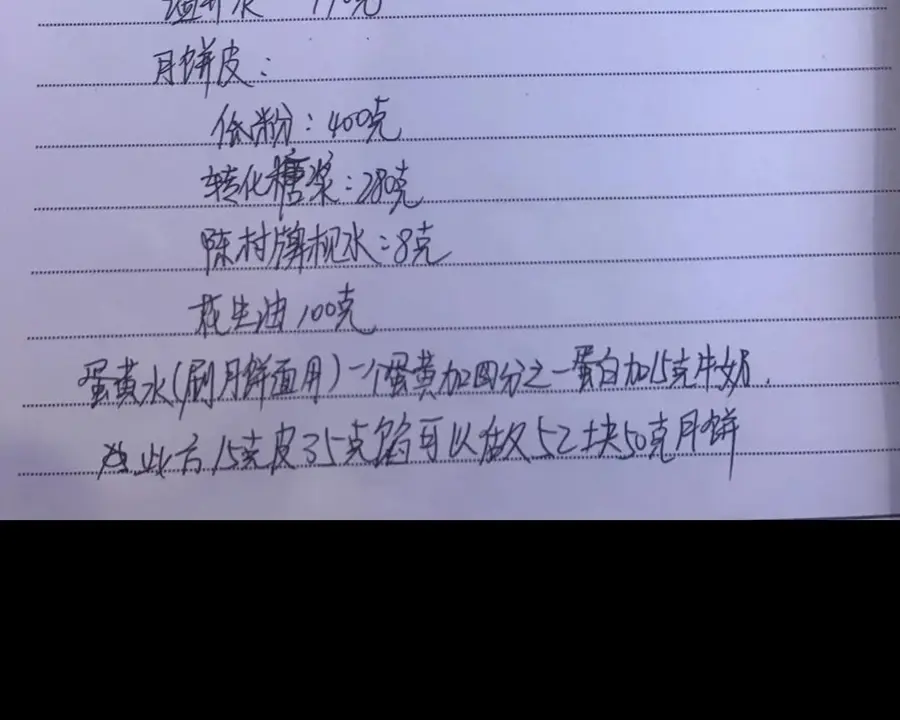 月饼皮:
低粉:400克
转化糖浆:280克
陈村牌枧水:8克
花生油100克
蛋黄水(刷月饼面用)一个蛋黄加四分之一蛋白加15克牛奶.
此方15克皮35克馅可以做52块50克月饼